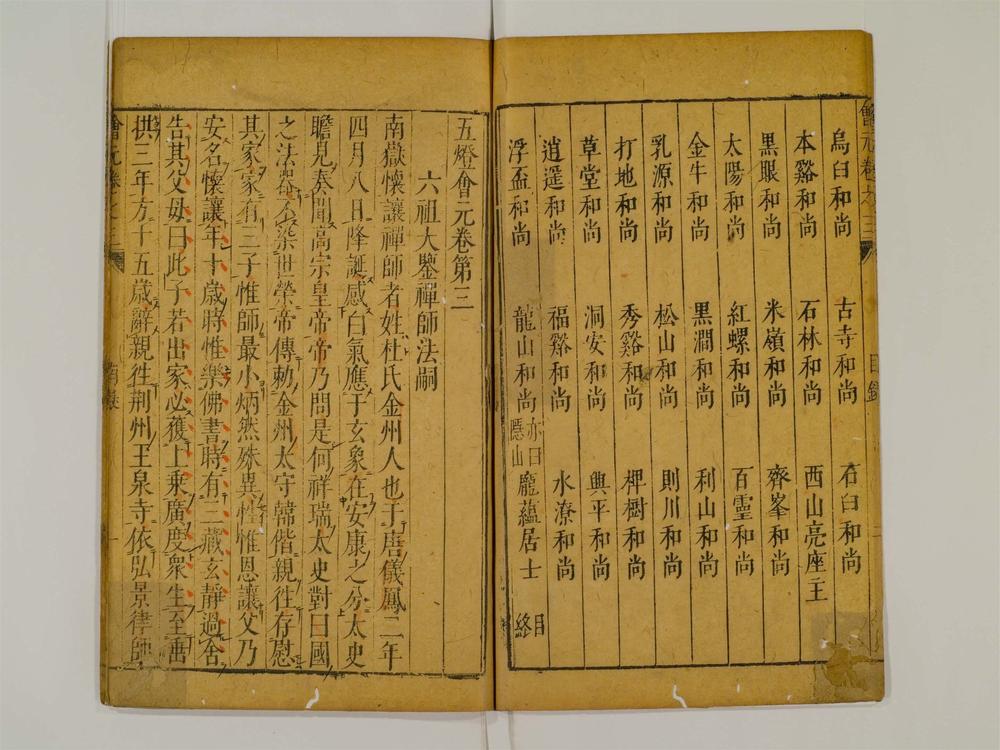 會元卷之三 目錄
烏臼和尚 古寺和尚 石臼和尚
本谿和尚 石林和尚 西山亮座主
黑眼和尚 米嶺和尚 齊峯和尚
太陽和尚 紅螺和尚 百靈和尚
金牛和尚 黑澗和尚 利山和尚
乳源和尚 松山和尚 則川和尚
打地和尚 秀谿和尚 椑樹和尚
草堂和尚 洞安和尚 興平和尚
逍遥和尚 福谿和尚 水潦和尚
浮盃和尚 龍山和尚亦曰隱山 龐蘊居士 目終
五燈會元卷第三
六祖大鑒禪師法嗣
南嶽懷讓禪師者姓杜氏金州人也于唐儀鳳二年
四月八日降誕感白氣應于玄象在安康之分太史
瞻見奏聞高宗皇帝帝乃問是何祥瑞太史對曰國
之法器不染世榮帝傳勅金州太守韓偕親徃存慰
其家家有三子惟師最小炳然殊異性惟恩讓父乃
安名懷讓年十歲時惟樂佛書時有三藏玄靜過舍
告其父母曰此子若出家必獲上乘廣度衆生至垂
拱三年方十五歲辭親徃荆州玉泉寺依弘景律師
會元卷之三